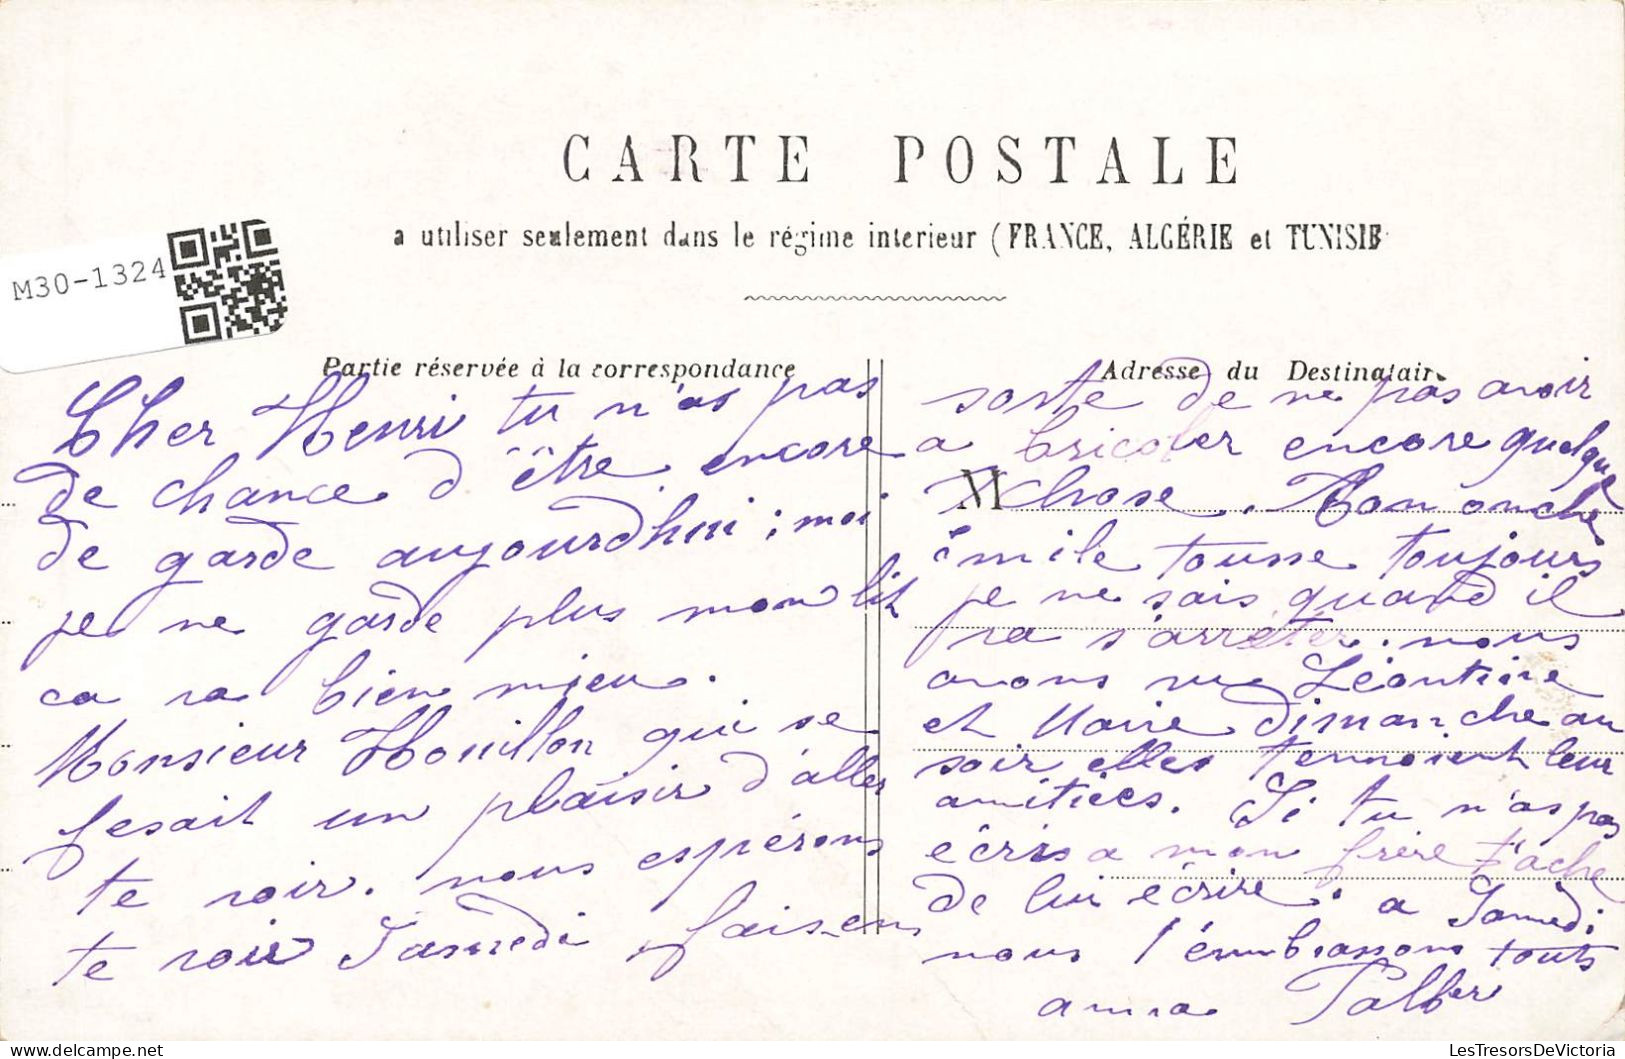 CARTE POSTALE
a utiliser seulement dans le régime interieur (FRANCE, ALGÉRIE et TUNISIE
M30-1324
Partie réservée à la correspondance
Cher Henri tu n'as pas
de chance d'être encore
de garde aujourdhui ; moi
je ne garde plus mon lit
ca va bien mieu.
Monsieur Houillon qui se
fesait un plaisir d'aller
te voir. nous espérons
te voir Samedi, fais en
Adresse du Destinatair
sorte de ne pas avoir
a bricoler encore quelque
M
chose. Mon oncle
émile tousse toujours
je ne sais quand il
va s'arrêter. nous
avons vu Léontine
et Marie dimanche au
soir elles tennoient leur
amitiées. Si tu n'as pas
écris a mon frère t'ache
de lui écrire. a Samedi
nous t'embrassons touts
anna
LesTresorsDeVictoria